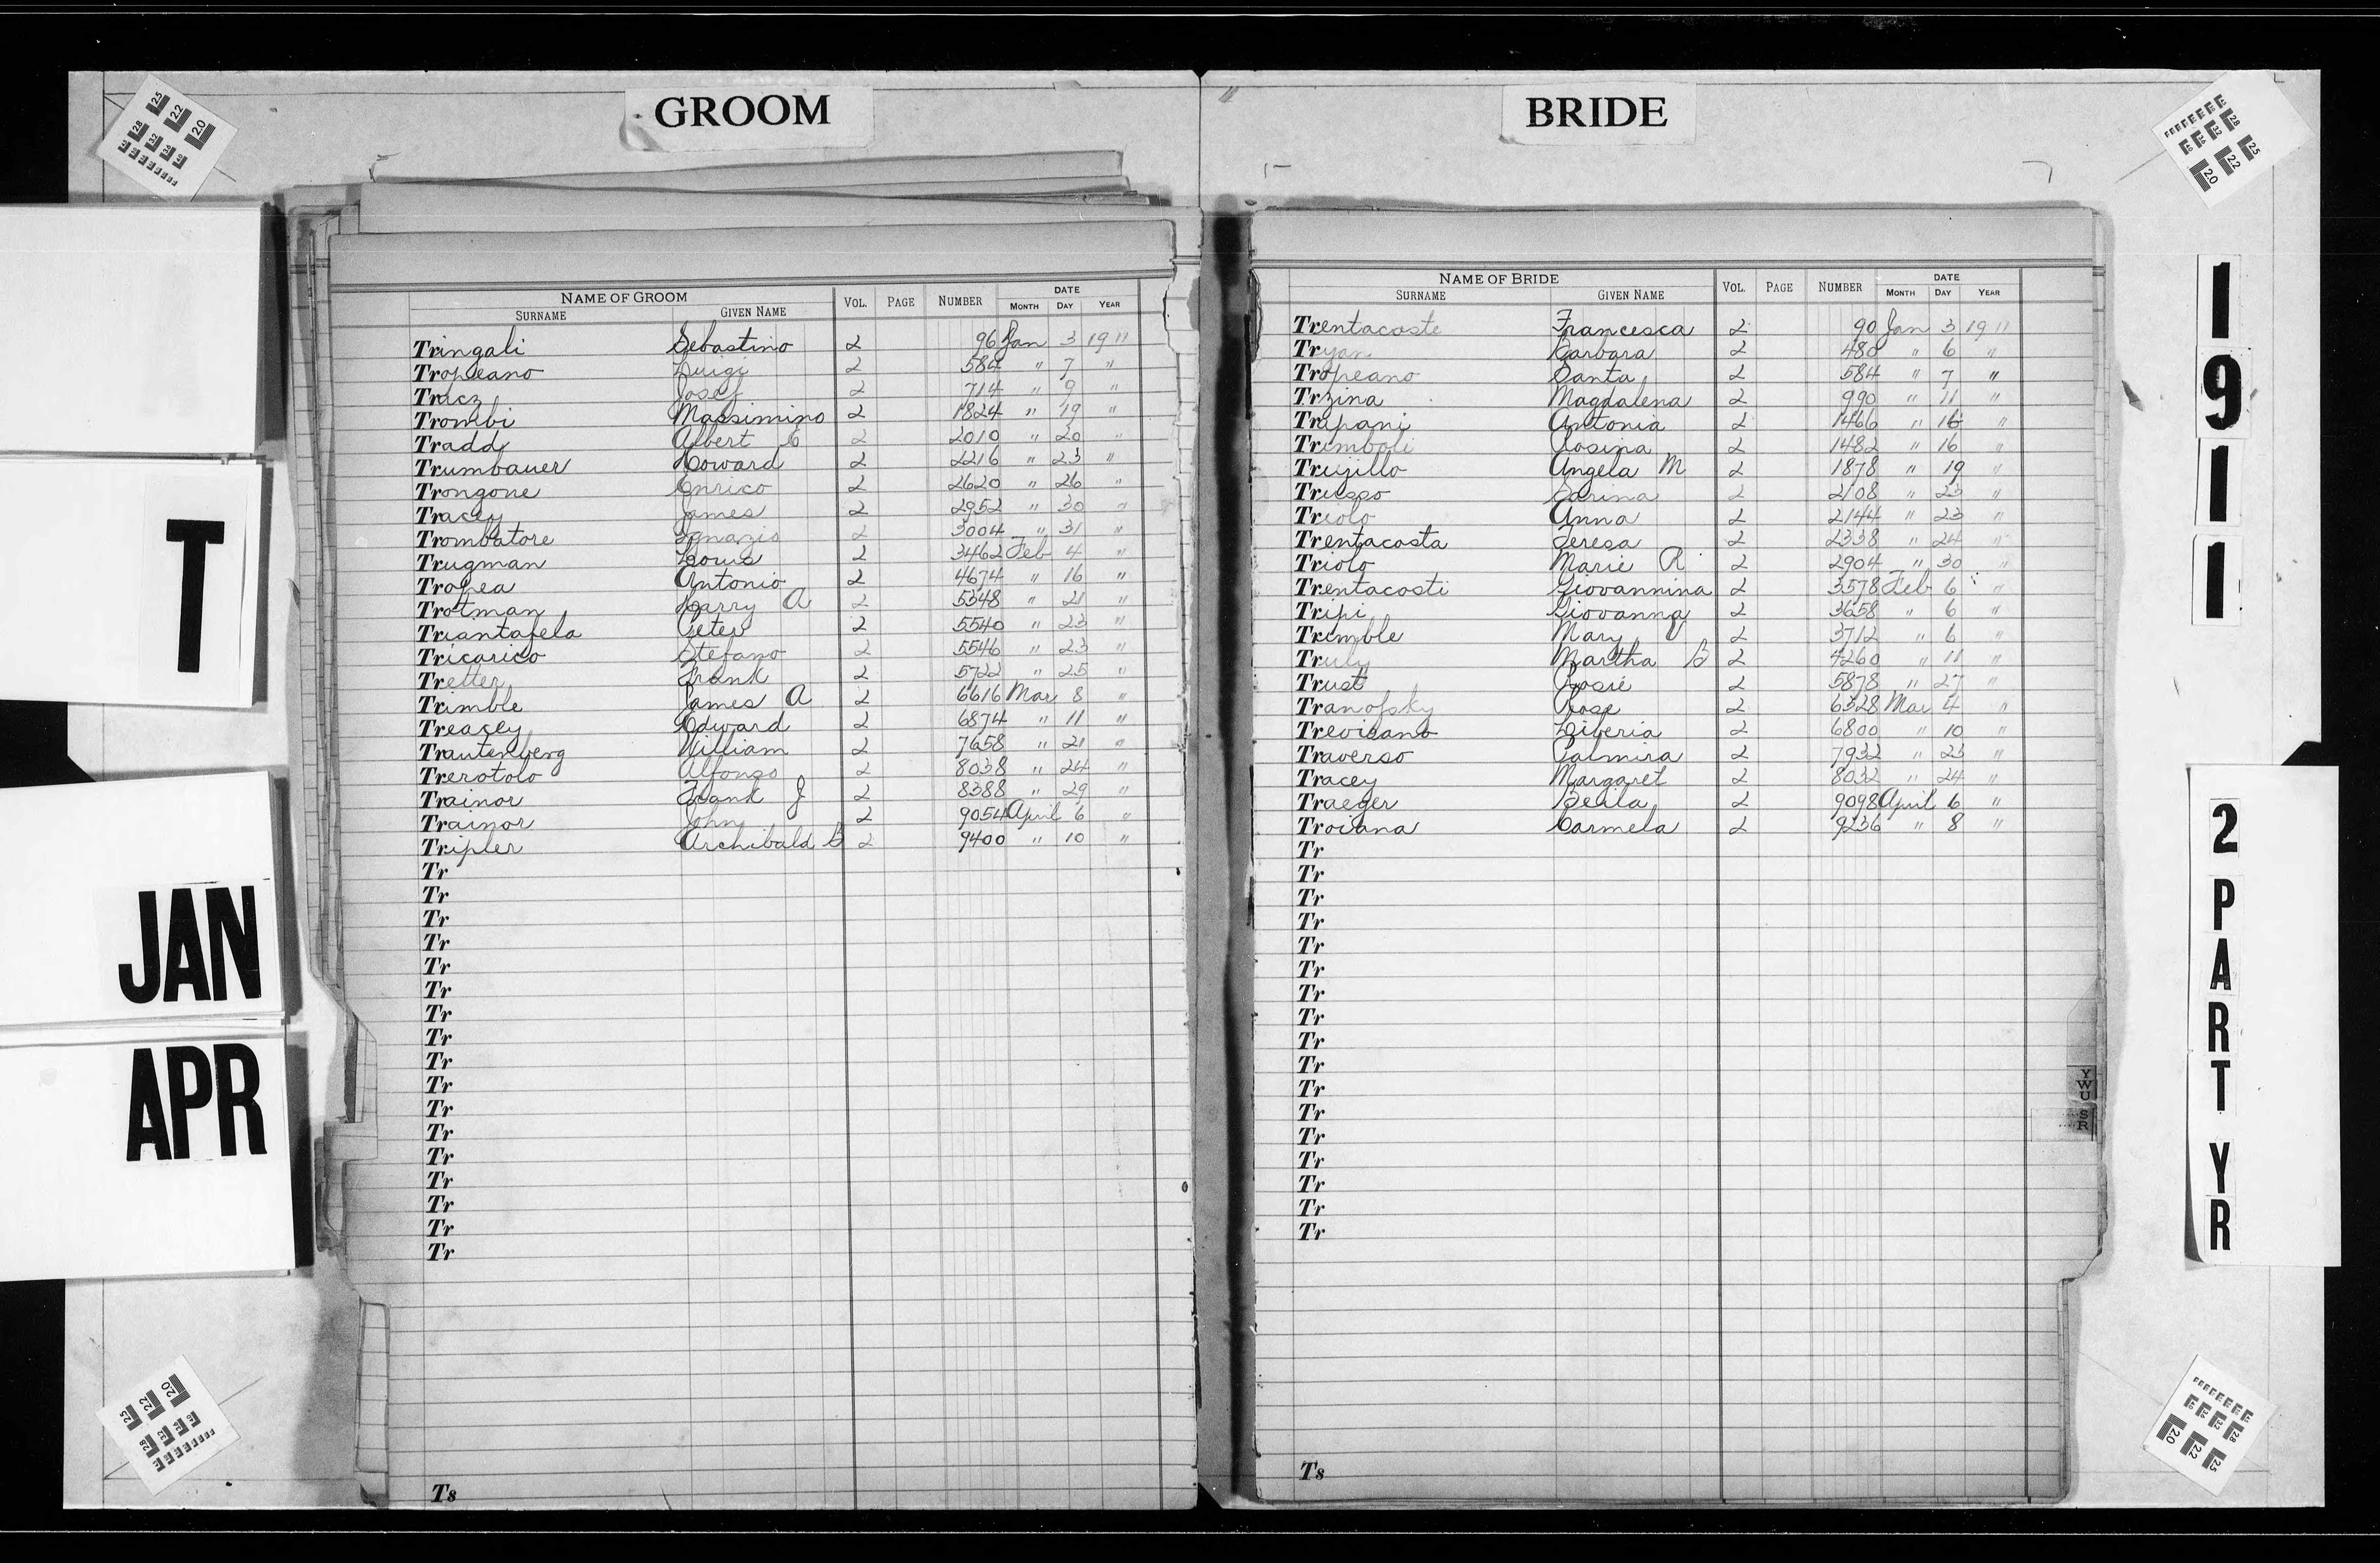 GROOM
NAME OF GROOM VOL. PAGE NUMBER DATE
SURNAME GIVEN NAME MONTH DAY YEAR
Tringali Sebastino 2 96 Jan 3 1911
Tropeano Luigi 2 584 " 7 "
Tracz Josef 2 714 " 9 "
Trombi Massimino 2 1824 " 19 "
Tradd Albert 2 2010 " 20 "
Trumbauer Howard 2 2216 " 23 "
Trongone Enrico 2 2620 " 26 "
Tracey James 2 2952 " 30 "
Trombatore Ignazio 2 3004 " 31 "
Trugman Louis 2 3462 Feb 4 "
Tropea Antonio 2 4674 " 16 "
Trotman Harry A 2 5348 " 21 "
Triantafela Peter 2 5540 " 23 "
Tricarico Stefano 2 5546 " 23 "
Tretter Frank 2 5722 " 25 "
Trimble James A 2 6616 Mar 8 "
Treacey Edward 2 6874 " 11 "
Trautenberg William 2 7658 " 21 "
Trerotolo Alfonso 2 8038 " 24 "
Trainor Frank J 2 8388 " 29 "
Trainor John 2 9054 April 6 "
Tripler Archibald B 2 9400 " 10 "
Tr
Tr
Tr
Tr
Tr
Tr
Tr
Tr
Tr
Tr
Tr
Tr
Tr
Tr
Tr
Tr
Tr
Ts
BRIDE
NAME OF BRIDE VOL. PAGE NUMBER DATE
SURNAME GIVEN NAME MONTH DAY YEAR
Trentacoste Francesca 2 90 Jan 3 1911
Tryan Barbara 2 480 " 6 "
Tropeano Santa 2 584 " 7 "
Trzina Magdalena 2 990 " 11 "
Trapani Antonia 2 1466 " 16 "
Trimboli Rosina 2 1482 " 16 "
Trujillo Angela M 2 1878 " 19 "
Trusso Sarina 2 2108 " 23 "
Triolo Anna 2 2144 " 23 "
Trentacosta Teresa 2 2338 " 24 "
Triolo Marie R 2 2904 " 30 "
Trentacosti Giovannina 2 3578 Feb 6 "
Tripi Giovanna 2 3658 " 6 "
Trimble Mary V 2 3712 " 6 "
Truly Martha B 2 4260 " 11 "
Trust Rosie 2 5878 " 27 "
Tranofsky Rose 2 6328 Mar 4 "
Trevisano Liberia 2 6800 " 10 "
Traverso Palmira 2 7932 " 23 "
Tracey Margaret 2 8032 " 24 "
Traeger Beila 2 9098 April 6 "
Troiana Carmela 2 9236 " 8 "
Tr
Tr
Tr
Tr
Tr
Tr
Tr
Tr
Tr
Tr
Tr
Tr
Tr
Tr
Tr
Tr
Tr
Ts
T
JAN
APR
1911
2 PART YR